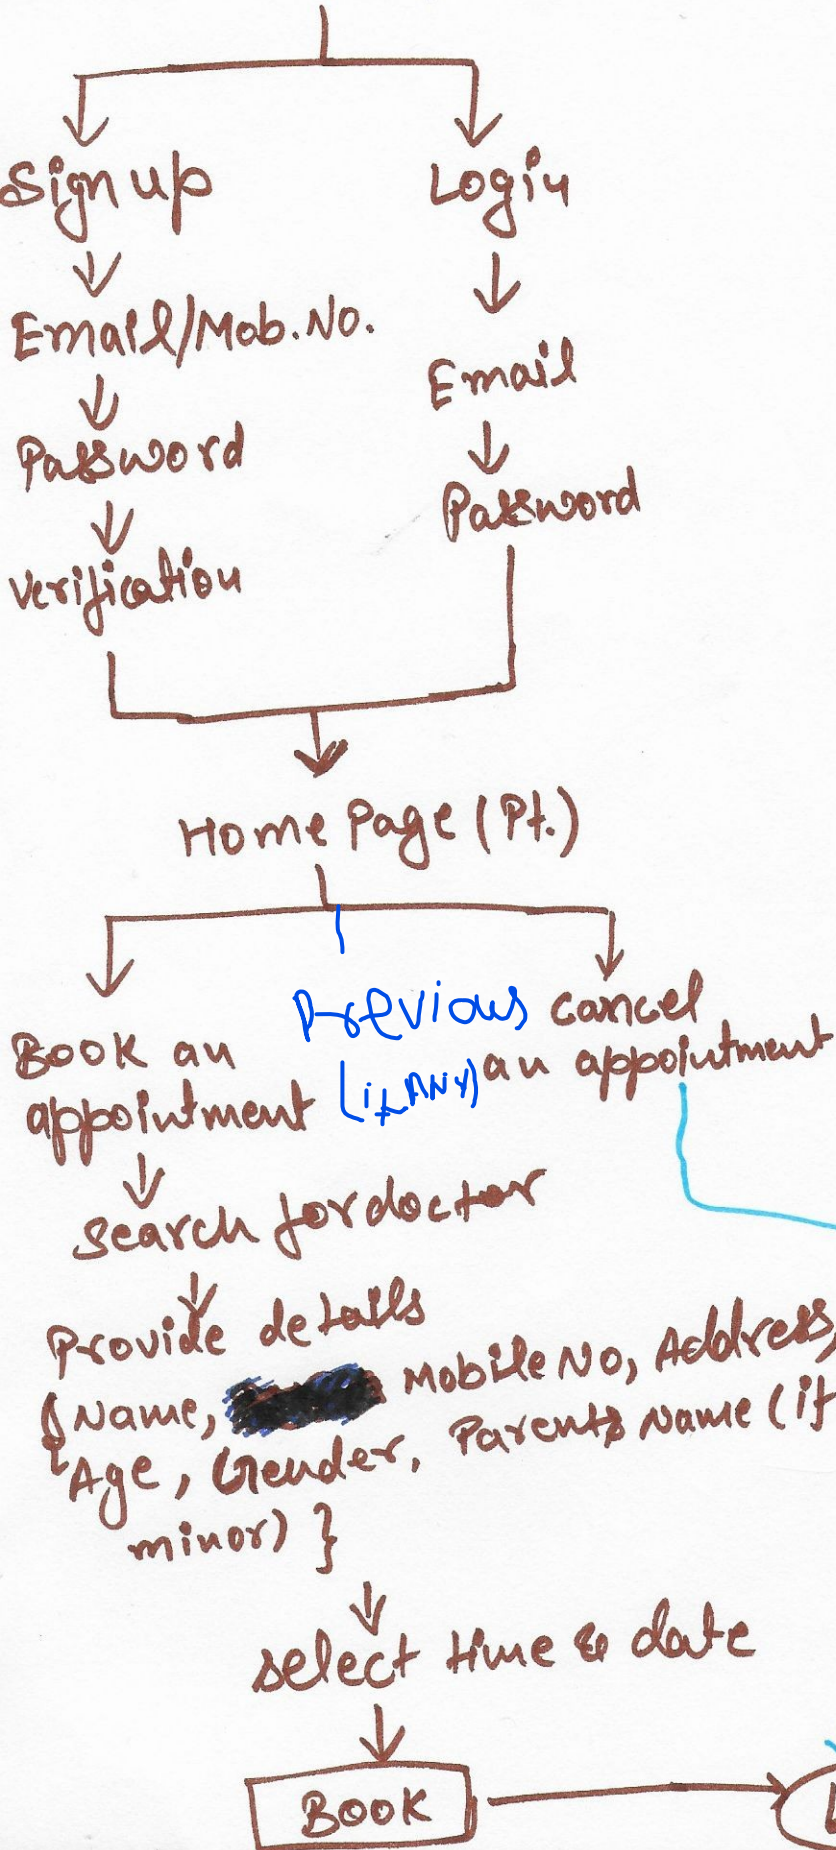 Sign up
Login
Email/Mob.No.
Email
Password
Password
Verification
Home Page (Pt.)
Book an
appointment
Previous
(if ANY)
cancel
an appointment
Search for doctor
Provide details
{ Name, Mobile No, Address,
Age, Gender, Parents Name (if
minor) }
select time & date
BOOK